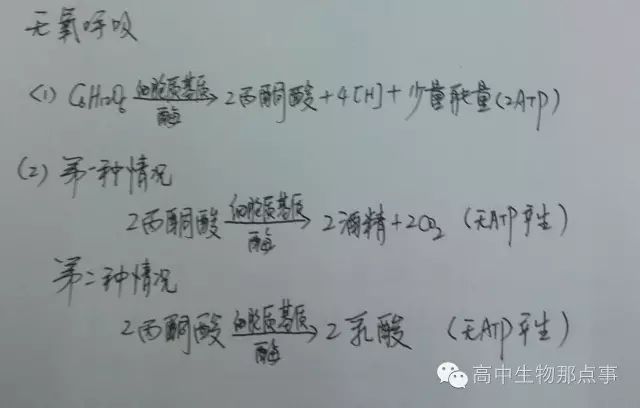 无氧呼吸
(1) C6H12O6 细胞质基质 酶 → 2丙酮酸+4[H]+少量能量(2ATP)
(2) 第一种情况
2丙酮酸 细胞质基质 酶 → 2酒精+2CO2 (无ATP产生)
第二种情况
2丙酮酸 细胞质基质 酶 → 2乳酸 (无ATP产生)
高中生物那点事